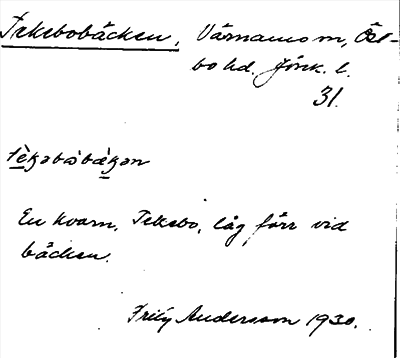 Tekebobäcken, Värnamo sn, Öst-
bo hd. Jönk. l.
31.
tèkəbobækən
En kvarn, Tekebo, låg förr vid
bäcken.
Andersson 1930.